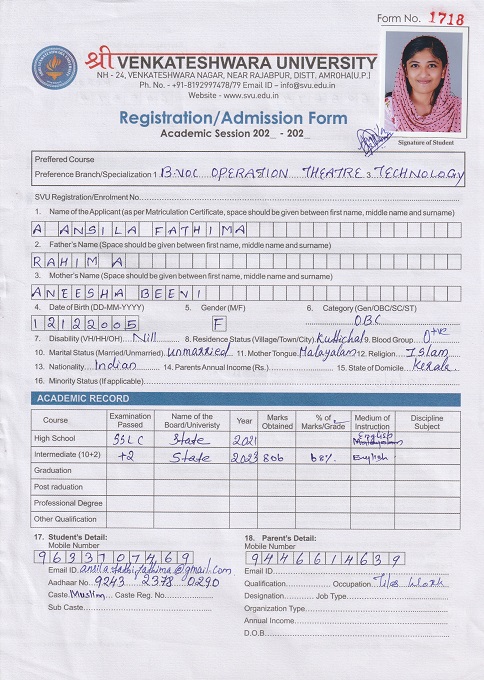 Form No. 1718
श्री VENKATESHWARA UNIVERSITY
NH - 24, VENKATESHWARA NAGAR, NEAR RAJABPUR, DISTT. AMROHA(U.P.)
Ph. No. - +91-8192997478/79 Email ID – info@svu.edu.in
Website - www.svu.edu.in
Registration/Admission Form
Academic Session 202_ - 202_
Signature of Student
Preffered Course
Preference Branch/Specialization 1 B.VOC OPERATION THEATRE 3. TECHNOLOGY
SVU Registration/Enrolment No.
1. Name of the Applicant (as per Matriculation Certificate, space should be given between first name, middle name and surname)
A ANSILA FATHIMA
2. Father's Name (Space should be given between first name, middle name and surname)
RAHIM A
3. Mother's Name (Space should be given between first name, middle name and surname)
ANEESHA BEEVI
4. Date of Birth (DD-MM-YYYY) 5. Gender (M/F) 6. Category (Gen/OBC/SC/ST)
12122005 F OBC
7. Disability (VH/HH/OH) Nill 8. Residence Status (Village/Town/City) Kuttichal 9. Blood Group O+ve
10. Marital Status (Married/Unmarried) unmarried 11. Mother Tongue Malayalam 12. Religion Islam
13. Nationality Indian 14. Parents Annual Income (Rs.) 15. State of Domicile Kerala
16. Minority Status (If applicable)
ACADEMIC RECORD
Course Examination Passed Name of the Board/Univeristy Year Marks Obtained % of Marks/Grade Medium of Instruction Discipline Subject
High School SSLC State 2021 English
Intermediate (10+2) +2 State 2023 806 68% English
Graduation
Post raduation
Professional Degree
Other Qualification
17. Student's Detail: 18. Parent's Detail:
Mobile Number Mobile Number
9633707469 9446614639
Email ID. @gmail.com Email ID
Aadhar No. 9243 2378 0290 Qualification Occupation Tiles work
Caste Muslim Caste Reg. No. Designation Job Type
Sub Caste Organization Type
Annual Income
D.O.B.